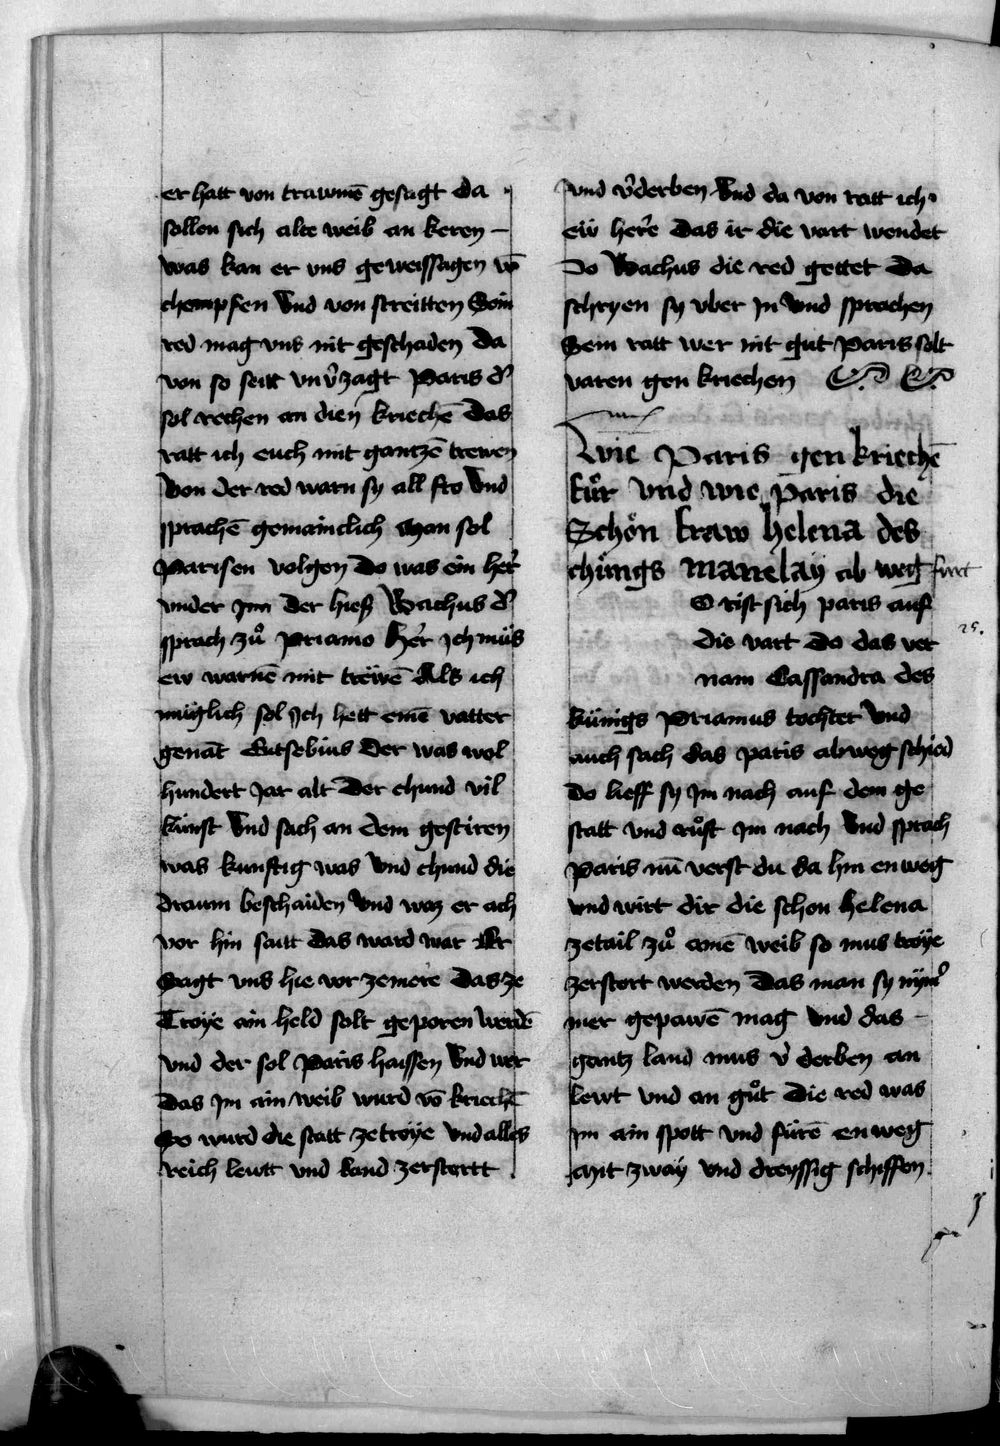 er hatt von trawmē gesagt da
sollen sich alte weib an keren –
was kan er vns geweissagen vō
chempfen Vnd von streitten Sein
red mag vns nit geschaden Da
von so seitt vnv̓zagt Paris d̓
sol rechen an dien kriechē Das
ratt ich euch mit gantzē trewen
Von der red warn sy all fro Vnd
sprachē gemainclich Man sol
Parisen volgen Do was ein her̓
vnder Jm der hieß Bachus d̓
sprach zuͦ Priamo her̓ Jch muͤs
ew warnē mit trewē Als ich
muglich sol Jch hett emē vatter
genāt Eutsebius Der was wol
hundert Jar alt Der chund vil
kunst Vnd sach an dem gestiren
was kunftig was Vnd chund die
draum beschaiden Vnd waz er ach
vor hin saitt das ward war Er
Sagt vns hie vor zemere das ze
Troye ain held solt geporen werdē
vnd der sol Paris haissen Vnd wer
das Jm ain weib wurd vō kriechē
So wurd die statt zetroye vnd alles
reich lewtt vnd land zerstortt
vnd v̓derben Vnd da von ratt ich
ew her̓e Das ir die vart wendet
Do Bachus die red gettet Da
schryen sy vber Jn Vnd sprachen
Sein ratt wer nit gut Paris solt
varen gen kriechen
Wie Paris gen kriechē
fuͦr vnd wie Paris die
Schön fraw helena des
chüngs Manelay ab weg furt
O rist sich paris auf
die vart Do das ver
nam Cassandra des
25.
künigs Priamus tochter Vnd
auch sach das paris abweg schied
Do lieff sy Jm nach auf dem ge
statt vnd ruͦft Jm nach Vnd sprach
Paris nū verst du da hin enweg
vnd wirt dir die schon helena
zetail zuͦ emē weib so mus troye
zerstort werden Das man sy nym̓
mer gepawē mag Vnd das –
gantz land mus v̓ derben an
lewt vnd an guͦt Die red was
Jm ain spott vnd fürē enweg
Mit zway vnd dreyssig schiffen